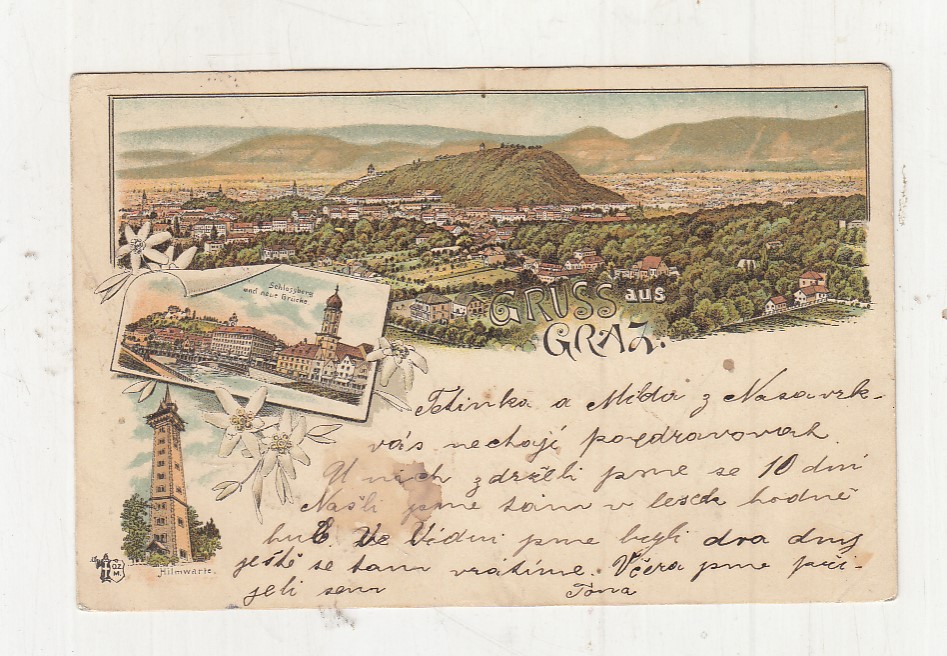 Schlossberg
und neue Brücke
GRUSS aus
GRAZ.
Tetinka a Milda z Nasavrk-
vás nechají pozdravovat.
U nich zdrželi jsme se 10 dní
Našli jsme tam v lesích hodně
hub. Ve Vídni jsme byli dva dny
ještě se tam vrátíme. Včera jsme při-
jeli sem Tóna
Hilmwarte.